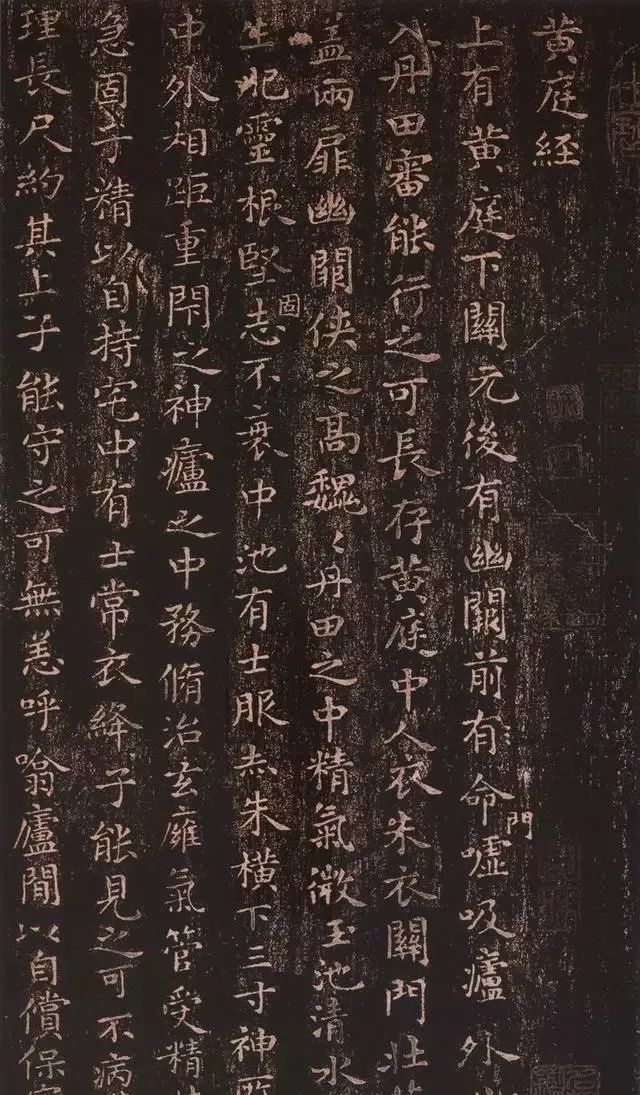 黄庭經
上有黄庭下關元後有幽闕前有命門噓吸廬外
入丹田審能行之可長存黄庭中人衣朱衣關門壯
盖兩扉幽闕俠之高魏〻丹田之中精氣微玉池清水
生肥靈根堅固志不衰中池有士服赤朱横下三寸神所
中外相距重閇之神廬之中務脩治玄㢕氣管受精
急固子精以自持宅中有士常衣絳子能見之可不病
理長尺約其上子能守之可無恙呼噏廬閒以自償保